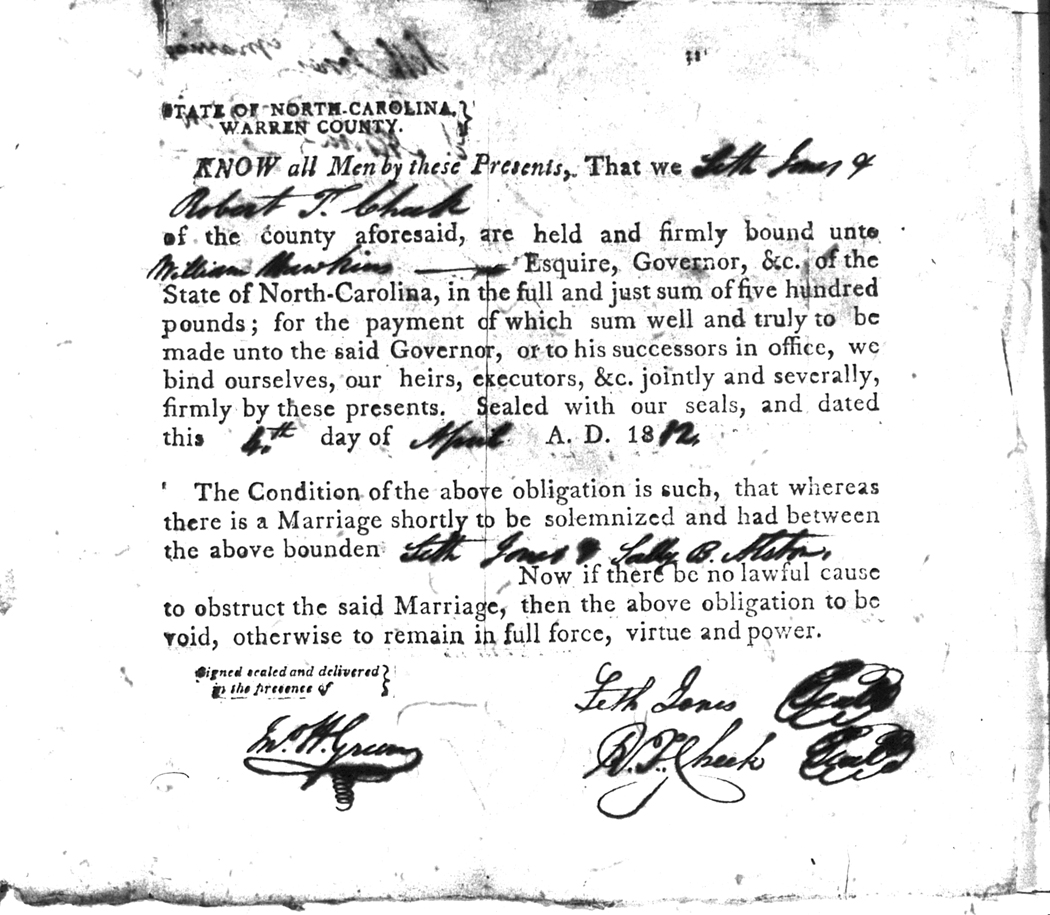 STATE OF NORTH-CAROLINA, }
WARREN COUNTY. }
KNOW all Men by these Presents, That we Seth Jones &
Robert T. Cheek
of the county aforesaid, are held and firmly bound unto
William Hawkins Esquire, Governor, &c. of the
State of North-Carolina, in the full and just sum of five hundred
pounds; for the payment of which sum well and truly to be
made unto the said Governor, or to his successors in office, we
bind ourselves, our heirs, executors, &c. jointly and severally,
firmly by these presents. Sealed with our seals, and dated
this 4th day of April A. D. 1812.
The Condition of the above obligation is such, that whereas
there is a Marriage shortly to be solemnized and had between
the above bounden Seth Jones & Sally B. Alston.
Now if there be no lawful cause
to obstruct the said Marriage, then the above obligation to be
void, otherwise to remain in full force, virtue and power.
Signed sealed and delivered }
in the presence of }
Seth Jones Seal
Jno. H. Green
R. T. Cheek Seal